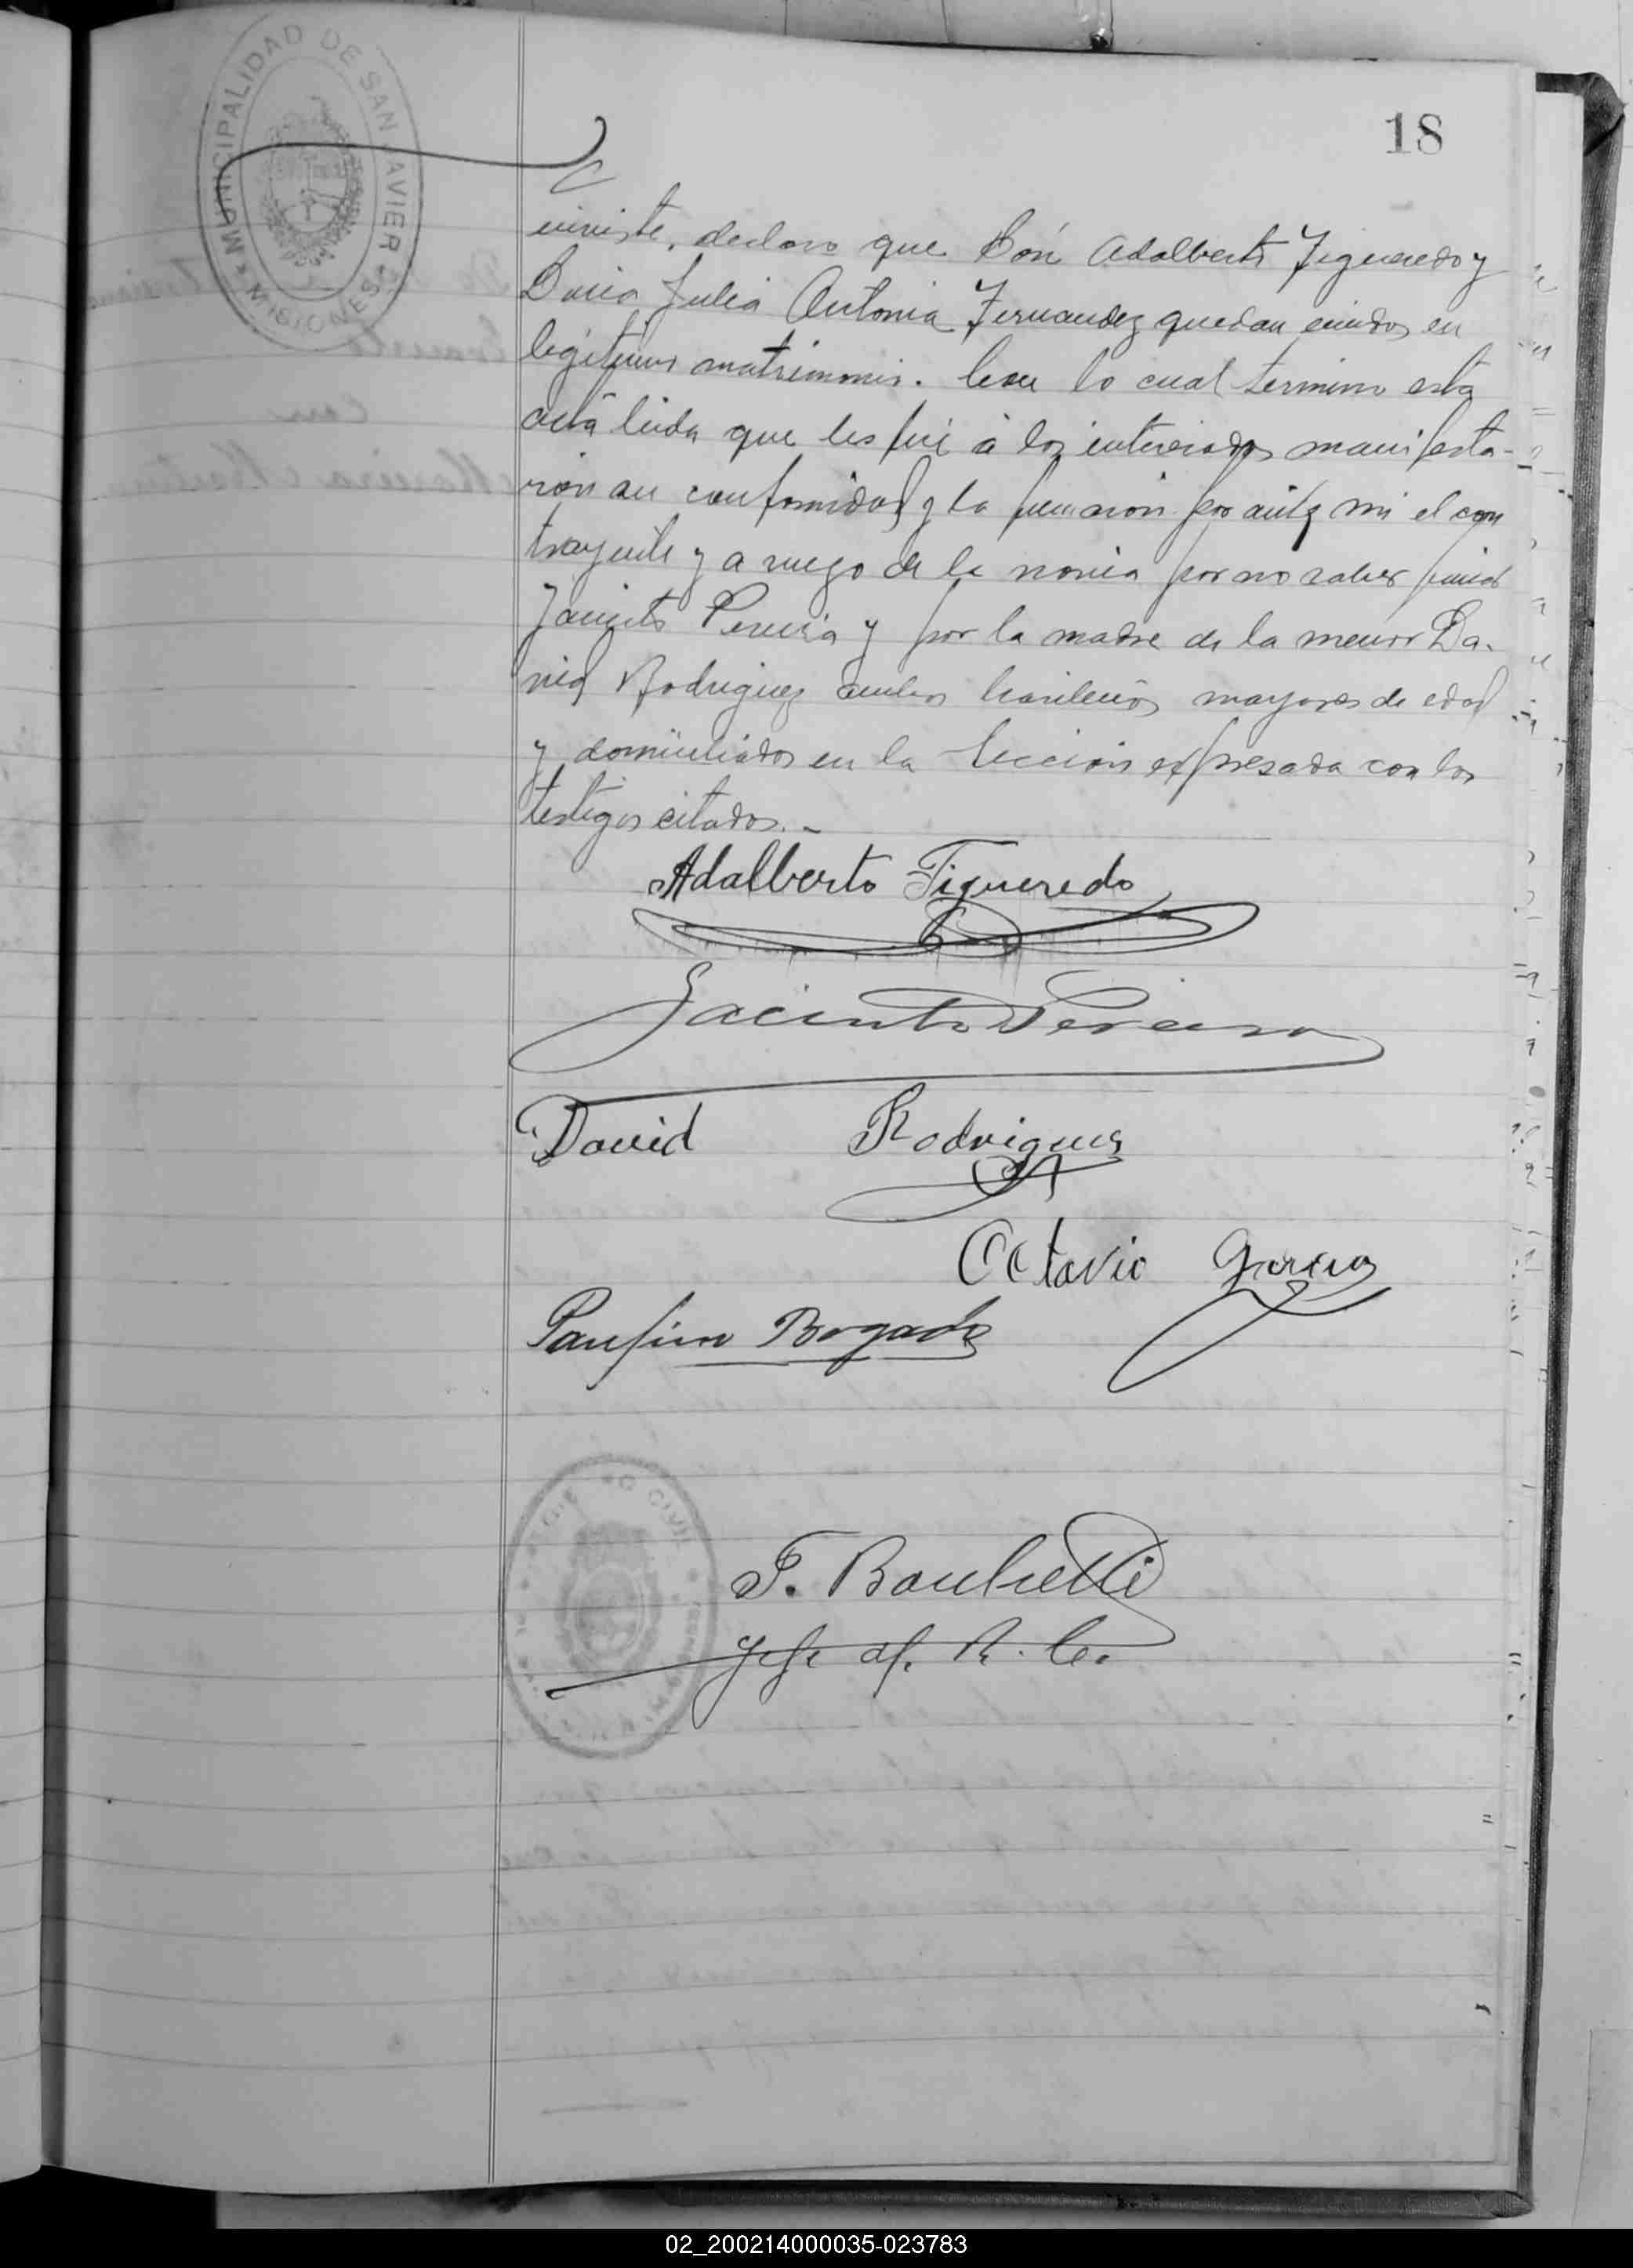 MUNICIPALIDAD DE SAN JAVIER
MISIONES
18
declaro que Don Adalberto Figueredo y
Doña Julia Antonia Fernandez quedan unidos en
legitimo matrimonio. Con lo cual termino esta
acta leida que les fué á los interesados manifesta-
ron su conformidad y la firmaron por ante mi el con
trayente y a ruego de la novia por no saber firmar
Jacinto Pereira y por la madre de la menor Da-
vid Rodriguez ambos brasileños mayores de edad
y domiciliados en la Seccion expresada con los
testigos citados.-
Adalberto Figueredo
Jacinto Pereira
David Rodrigues
Octavio Garcia
Panfino Bogado
CIVIL
Jefe of. R. C.
02_200214000035-023783